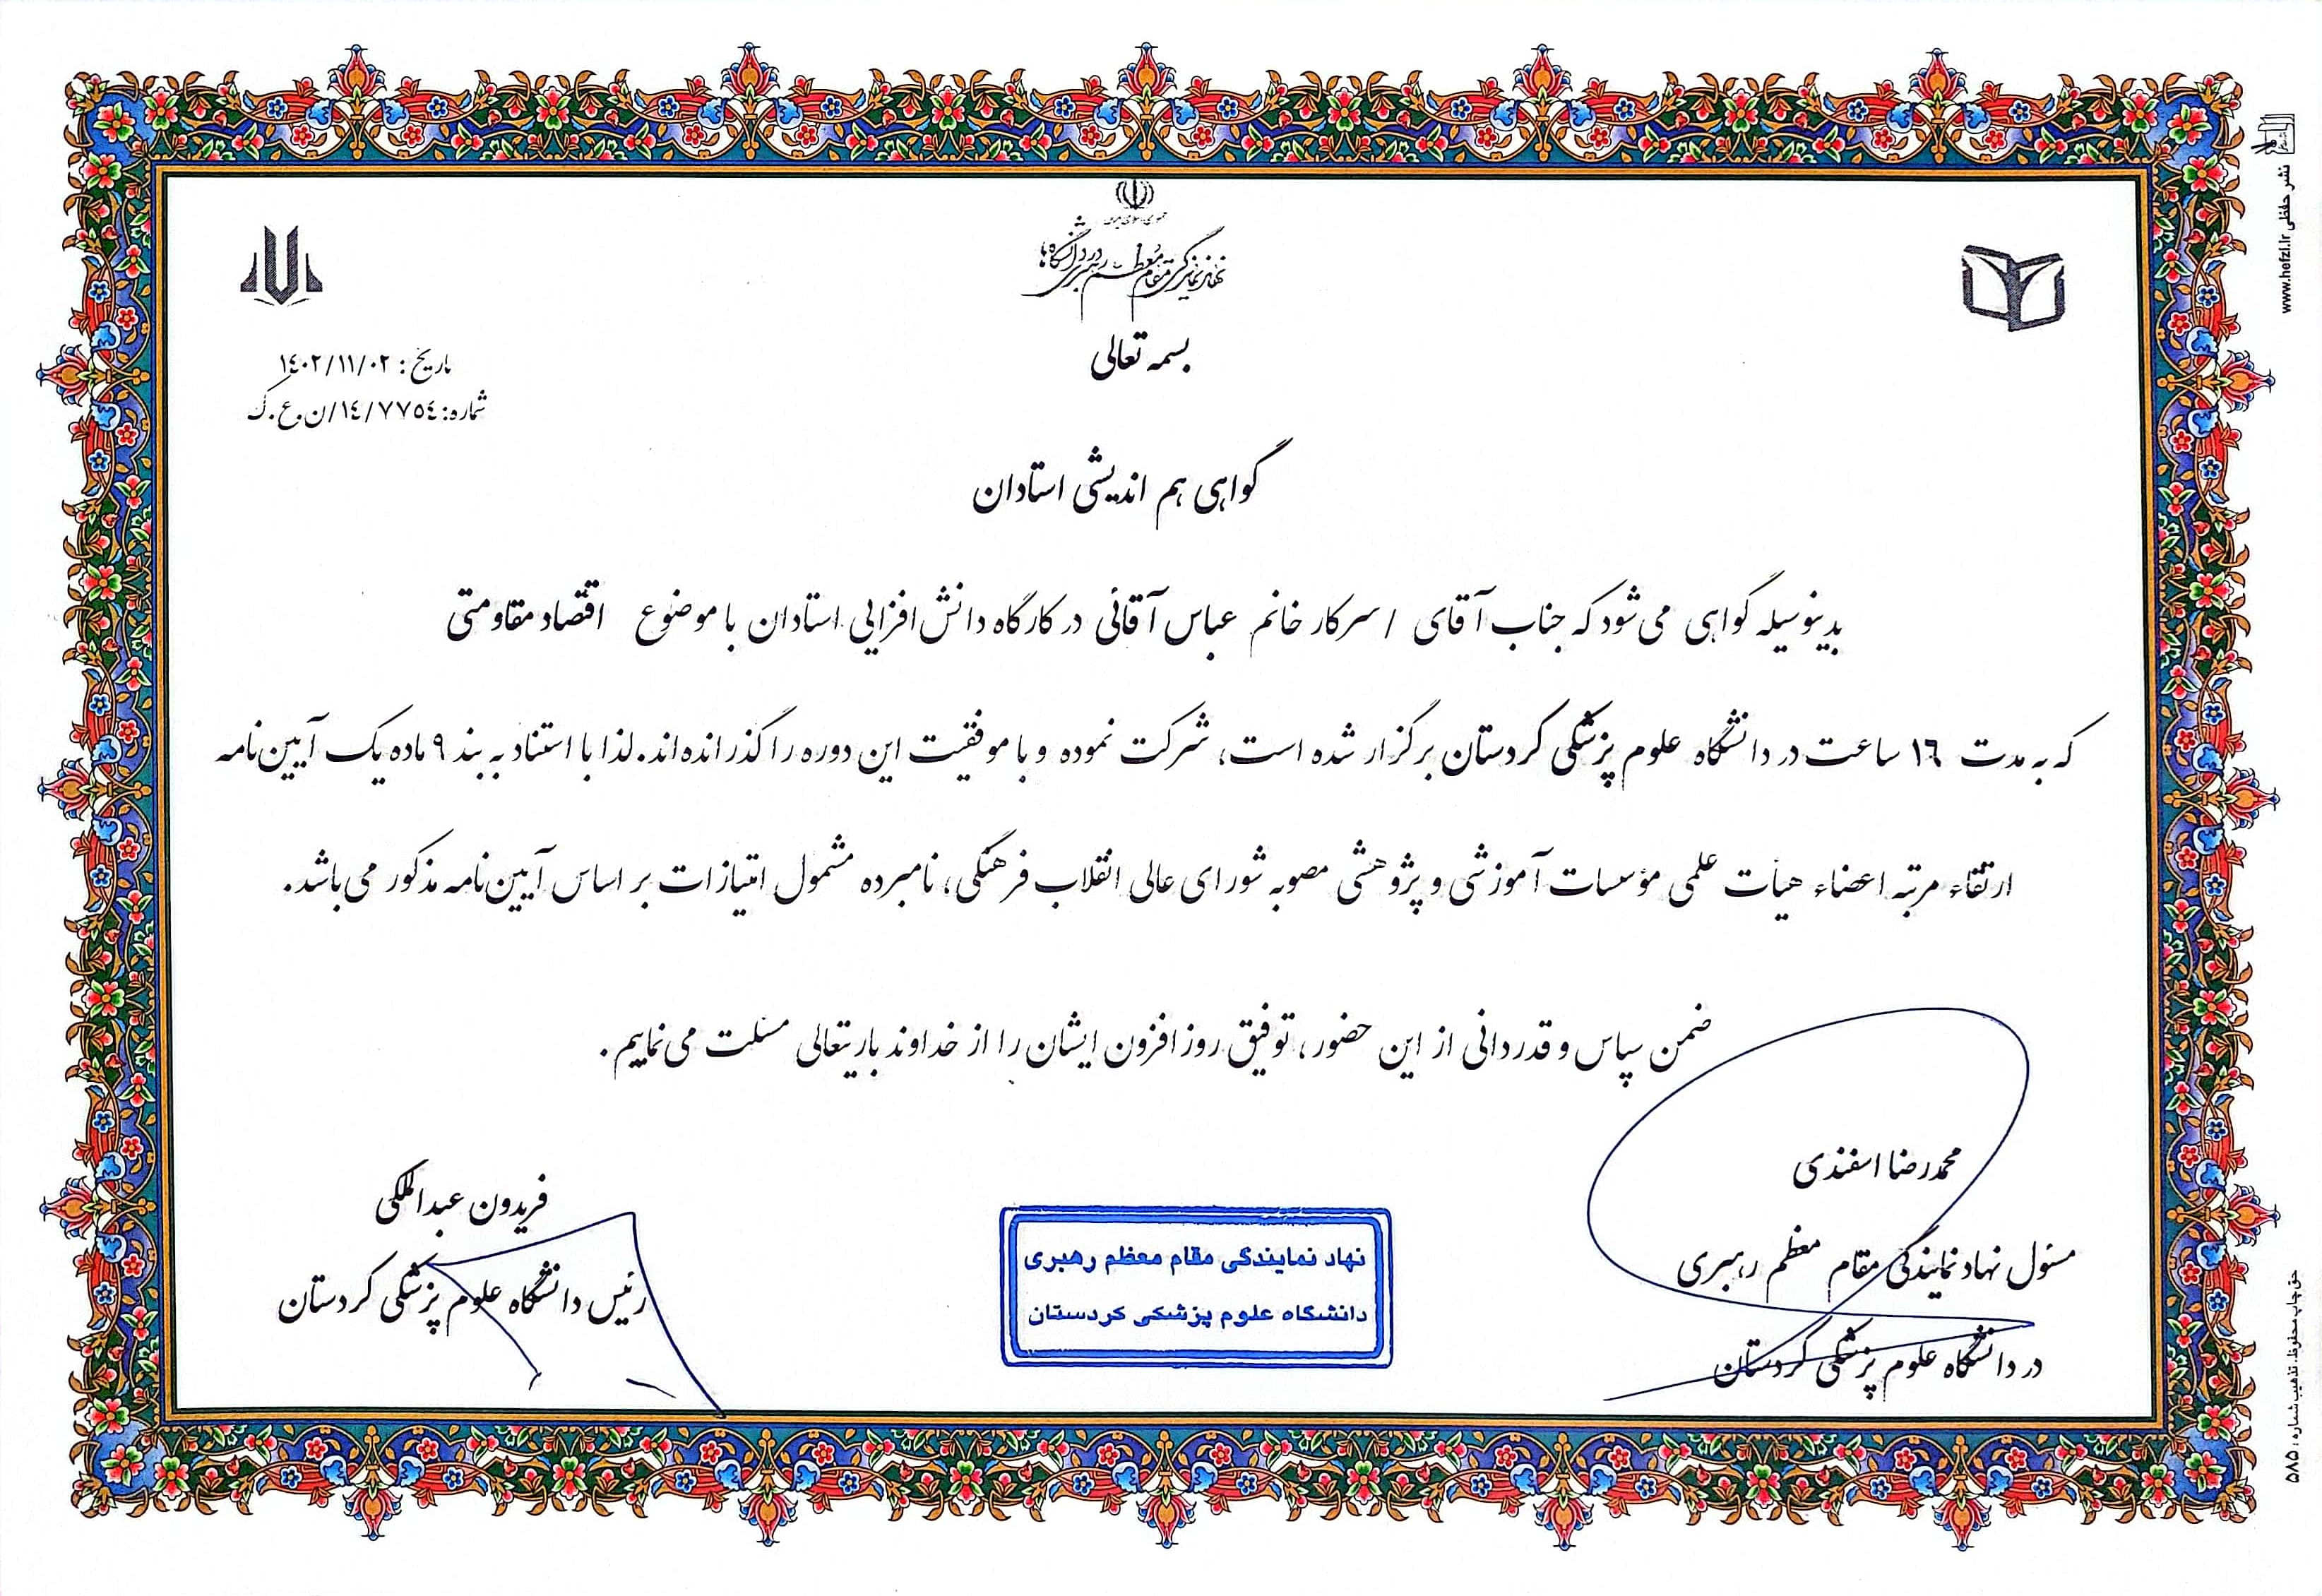 جمهوری اسلامی ایران
نهاد نمایندگی مقام معظم رهبری در دانشگاه‌ها
بسمه تعالی
تاریخ : ١٤٠٢/١١/٠٢
شماره: ١٤/٧٧٥٤/ن.ع.ک
گواهی هم اندیشی استادان
بدینوسیله گواهی می‌شود که جناب آقای / سرکار خانم عباس آقائی در کارگاه دانش افزایی استادان با موضوع اقتصاد مقاومتی
که به مدت ١٦ ساعت در دانشگاه علوم پزشکی کردستان برگزار شده است، شرکت نموده و با موفقیت این دوره را گذرانده‌اند. لذا با استناد به بند ٩ ماده یک آیین‌نامه
ارتقاء مرتبه اعضاء هیأت علمی مؤسسات آموزشی و پژوهشی مصوبه شورای عالی انقلاب فرهنگی، نامبرده مشمول امتیازات بر اساس آیین‌نامه مذکور می‌باشد.
ضمن سپاس و قدردانی از این حضور، توفیق روزافزون ایشان را از خداوند باریتعالی مسئلت می‌نماییم.
محمدرضا اسفندی
مسئول نهاد نمایندگی مقام معظم رهبری
در دانشگاه علوم پزشکی کردستان
نهاد نمایندگی مقام معظم رهبری
دانشگاه علوم پزشکی کردستان
فریدون عبدالملکی
رئیس دانشگاه علوم پزشکی کردستان
نشر حفظی www.hefzi.ir
حق چاپ محفوظ. تذهیب شماره: ۵۸۵